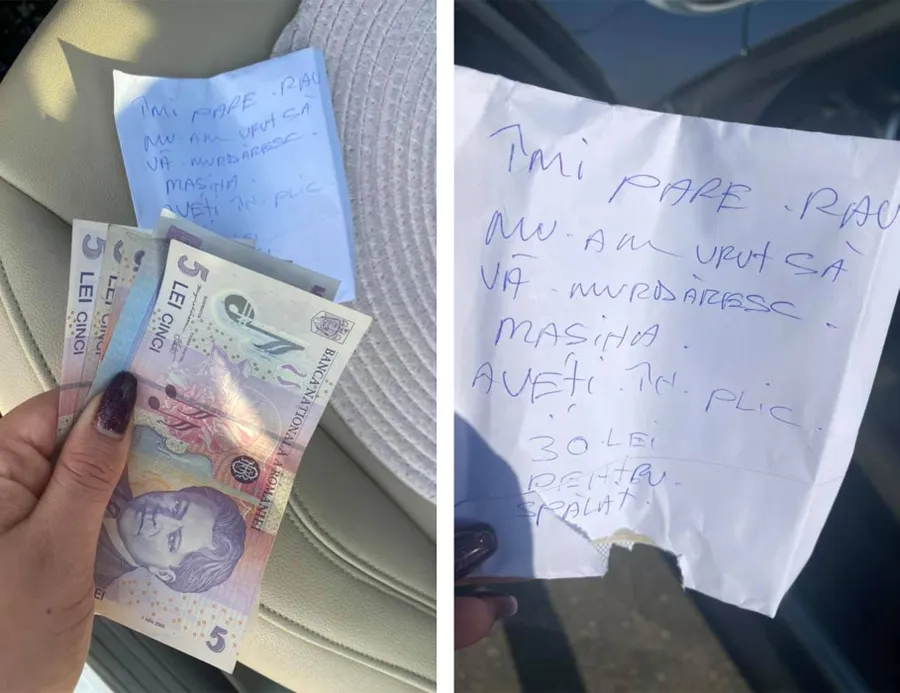 ÎMI PARE .RĂU
NU AM VRUT SĂ
VĂ MURDĂRESC.
MAȘINA.
AVEȚI ÎN PLIC
5 LEI CINCI
5 LEI CINCI
5 LEI CINCI
BANCA NAȚIONALĂ A ROMÂNIEI
1 iulie 2005
LEI
5
ÎMI PARE .RAU
NU. AM VRUT SĂ
VĂ . MURDĂRESC .
MAȘINA .
AVEȚI . ÎN . PLIC .
30 LEI
PENTRU .
SPĂLAT.